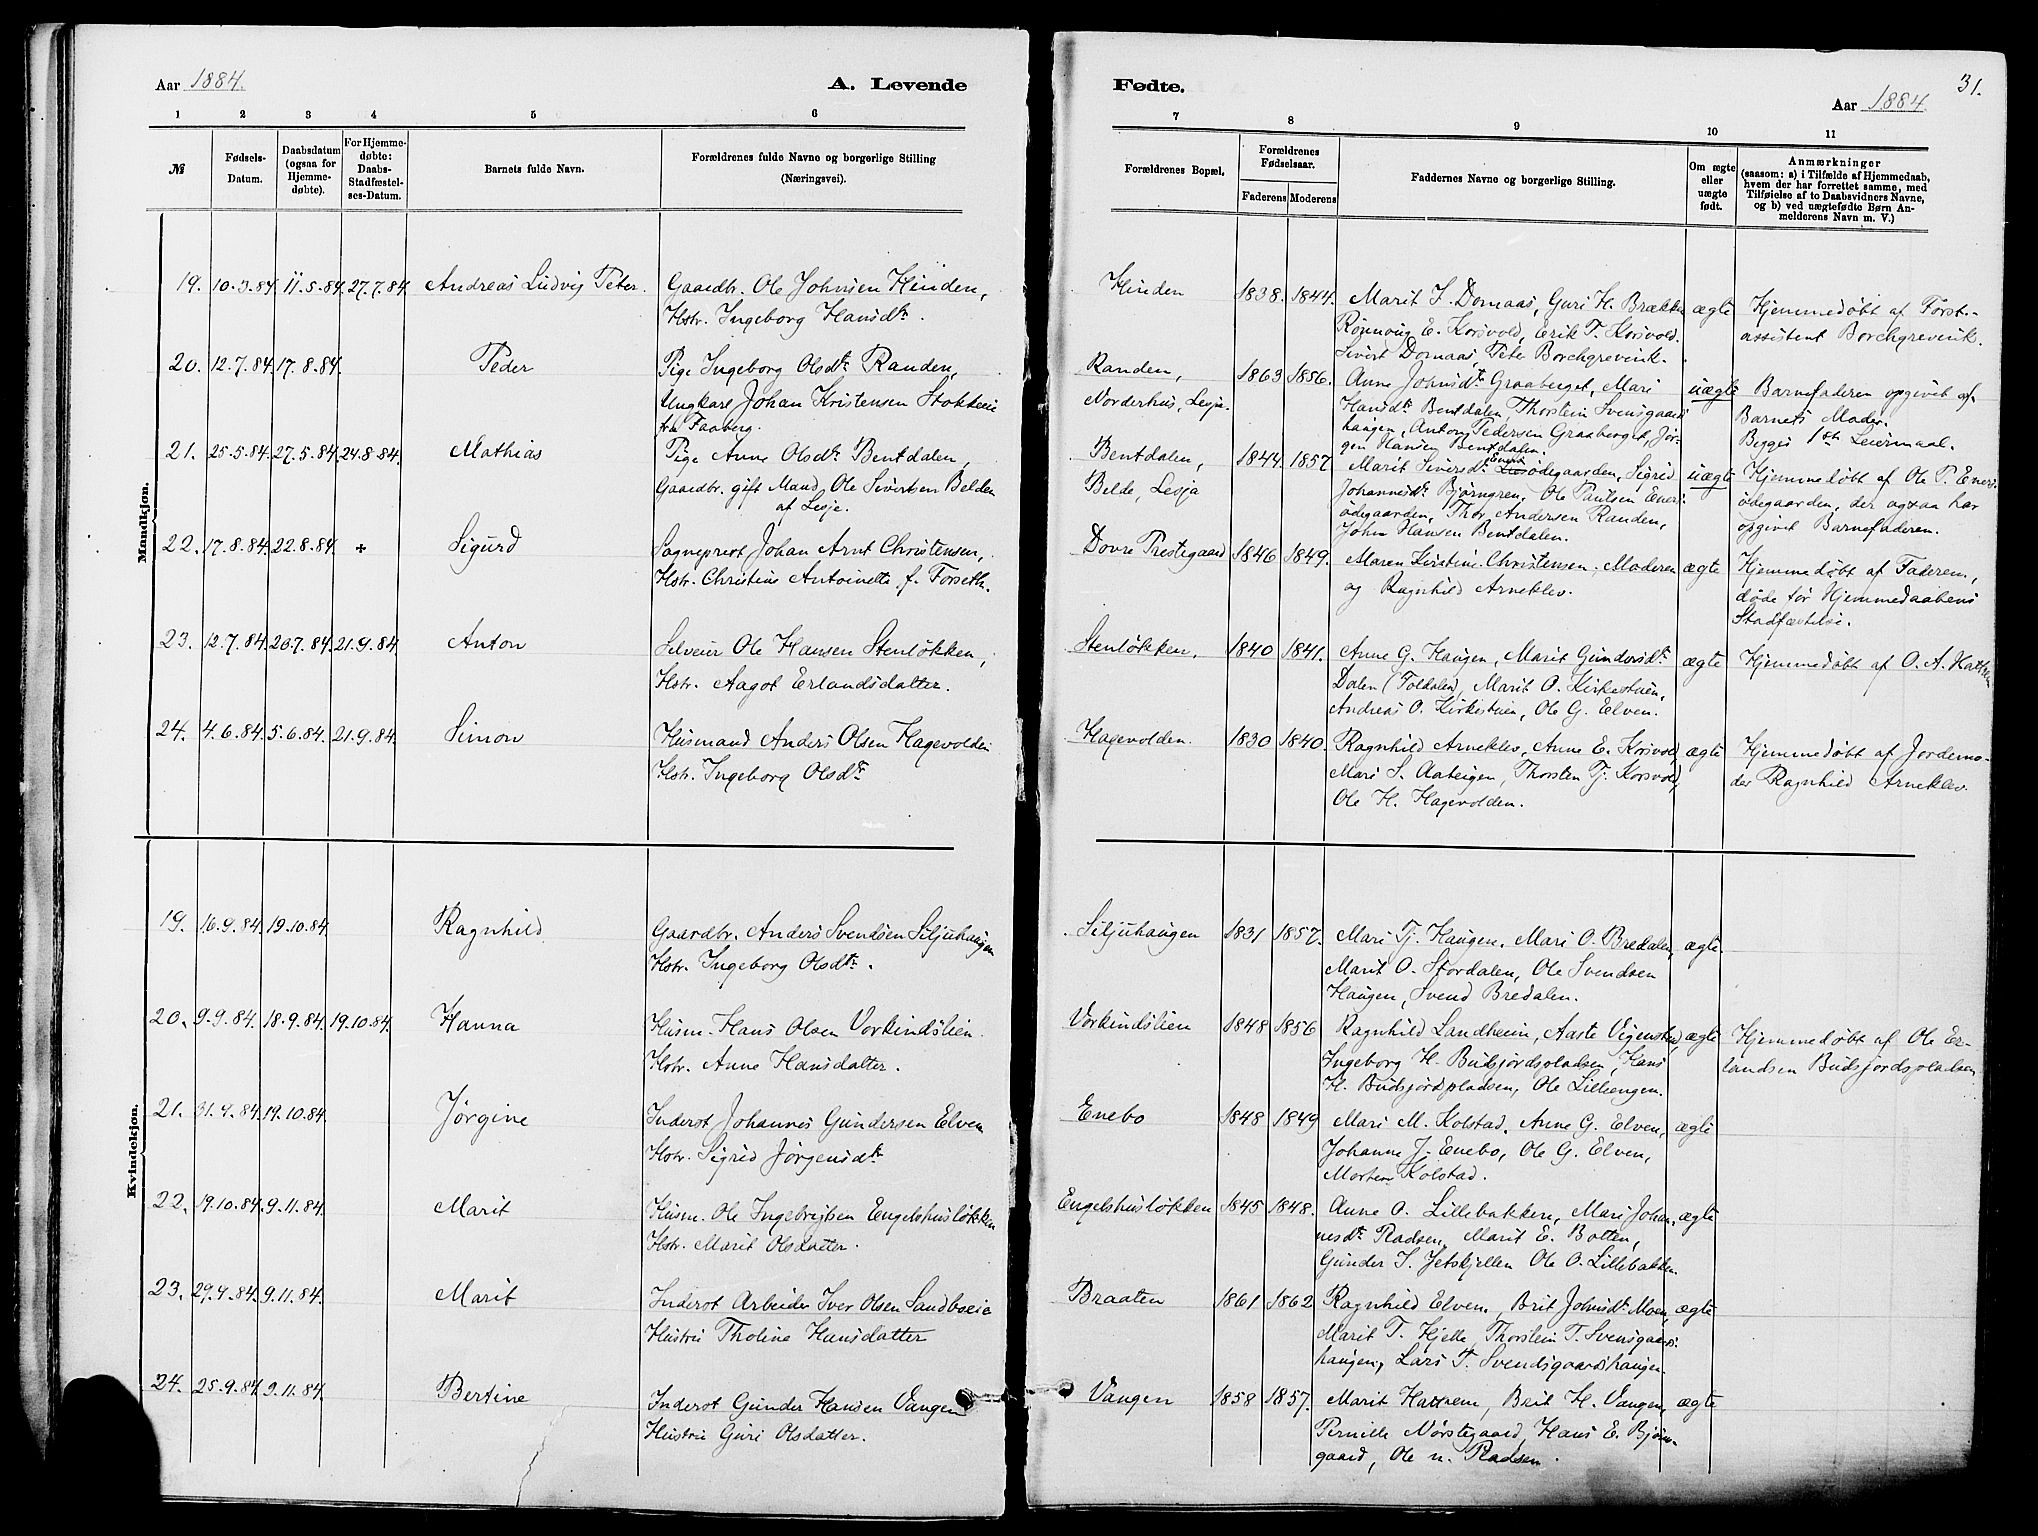 Aar 1884.
A. Levende
1 2 3 4 5 6
№
Fødsels-Datum.
Daabsdatum (ogsaa for Hjemme-døbte).
For Hjemme-døbte: Daabs-Stadfæstel-ses-Datum.
Barnets fulde Navn.
Forældrenes fulde Navne og borgerlige Stilling (Næringsvei).
Mandkjøn.
19. 10.3.84. 11.5.84. 27.7.84. Andreas Ludvig Peter. Gaardbr. Ole Johnsen Hinden,
Hstr. Ingeborg Hansdtr.
20. 12.7.84. 17.8.84. Peder Pige Ingeborg Olsdtr Randen,
Ungkarl Johan Kristensen Stokkeie
fra Faaberg.
21. 25.5.84. 27.5.84. 24.8.84. Mathias Pige Anne Olsdtr Bentdalen,
Gaardbr. gift Mand, Ole Sivertsen Belden
af Lesje.
22. 17.8.84. 22.8.84. + Sigurd Sogneprest Johan Arnt Christensen,
Hstr. Christine Antoinette f. Forseth.
23. 12.7.84. 20.7.84. 21.9.84. Anton Selveier Ole Hansen Stenløkken,
Hstr. Aagot Erlandsdatter.
24. 4.6.84. 5.6.84. 21.9.84. Simon Husmand Anders Olsen Hagevolden
Hstr. Ingeborg Olsdtr
Kvindekjøn.
19. 16.9.84. 19.10.84. Ragnhild Gaardbr. Anders Svendsen Siljuhaugen
Hstr. Ingeborg Olsdtr.
20. 9.9.84. 18.9.84. 19.10.84. Hanna Husm. Hans Olsen Vorkindslien.
Hstr. Anne Hansdatter.
21. 31.9.84. 19.10.84. Jørgine Inderst Johannes Gundersen Elven
Hstr. Sigrid Jørgensdtr
22. 19.10.84. 9.11.84. Marit Husm. Ole Ingebrigtsen Engelshusløkken
Hstr. Marit Olsdatter.
23. 29.9.84. 9.11.84. Marit Inderst Arbeider Iver Olsen Sandboeie
Hustru Tholine Hansdatter
24. 25.9.84. 9.11.84. Bertine Inderst Gunder Hansen Vangen
Hustru Guri Olsdatter.
Fødte.
31.
Aar 1884.
7 8 9 10 11
Forældrenes Bopæl.
Forældrenes Fødselsaar.
Faderens Moderens
Faddernes Navne og borgerlige Stilling.
Om ægte eller uægte født.
Anmærkninger
(saasom: a) i Tilfælde af Hjemmedaab,
hvem der har forrettet samme, med
Tilføielse af to Daabsvidners Navne,
og b) ved uægtefødte Børn An-
melderens Navn m. V.)
Hinden 1838. 1844. Marit J. Dornaas, Guri H. Brækken ægte Hjemmedøbt af Forst-
E. Korsvold, Erik T. Korsvold. assistent Borchgrevink.
Sivert Dornaas, Peter Borchgrevink.
Randen, 1863 1856. Anne Johnsdtr Graaberget, Mari uægte Barnefaderen opgivet af
Norderhus, Lesje. Hansdtr Bentdalen, Thorstein Svensgaards- Barnets Moder.
haugen, Anton Pedersen Graaberget, Jør- Begges 1ste Leiermaal.
gen Hansen Bentdalen.
Bentdalen, 1844. 1857 Marit Siversdtr Eners ødegaarden, Sigrid uægte Hjemmedøbt af Ole P. Eners-
Belde, Lesja Johannesdtr Bjørngren, Ole Paulsen Eners- ødegaarden, der ogsaa har
ødegaarden, Thor Andersen Randen, opgivet Barnefaderen.
John Hansen Bentdalen.
Dovre Prestegaard 1846 1849. Maren Kirstine Christensen, Moderen ægte Hjemmedøbt af Faderen,
og Ragnhild Arneklev. døde før Hjemmedaabens
Stadfæstelse.
Stenløkken, 1840 1841. Anne G. Haugen, Marit Gundersdtr ægte Hjemmedøbt af O. A. Hattrem
Dalen (Foldalen), Marit O. Kirkestuen,
Andreas O. Kirkestuen, Ole G. Elven.
Hagevolden. 1830 1840. Ragnhild Arneklev, Anne E. Korsvold, ægte Hjemmedøbt af Jordemo-
Mari S. Aateigen, Thorsten Tj. Korsvold, der Ragnhild Arneklev.
Ole H. Hagevolden.
Siljuhaugen 1831 1857. Mari Tj. Haugen. Mari O. Bredalen, ægte.
Marit O. Stordalen, Ole Svendsen
Haugen, Svend Bredalen.
Vorkindslien 1848 1856 Ragnhild Landheim, Aaste Vigenstad, ægte Hjemmedøbt af Ole Er-
Ingeborg H. Budsjordspladsen, Hans landsen Budsjordspladsen
H. Budsjordspladsen, Ole Lillengen.
Enebo 1848 1849 Mari M. Kolstad. Anne G. Elven, ægte
Johanne J. Enebo, Ole G. Elven,
Morten Kolstad.
Engelshusløkken 1845 1848. Anne O. Lillebakken, Mari Johan- ægte
nesdtr Pladsen, Marit E. Bolten,
Gunder S. Jetskjellen Ole O. Lillebakken.
Braaten 1861 1862 Ragnhild Elven, Brit Johnsdtr Moen, ægte
Marit T. Hjelle, Thorstein T. Svensgaards-
haugen, Lars T. Svendsgaardshaugen
Vangen 1858 1857. Marit Hattrem, Brit H. Vangen, ægte
Pernille Nørstegaard, Hans E. Bjørn-
gaard, Ole n. Pladsen.